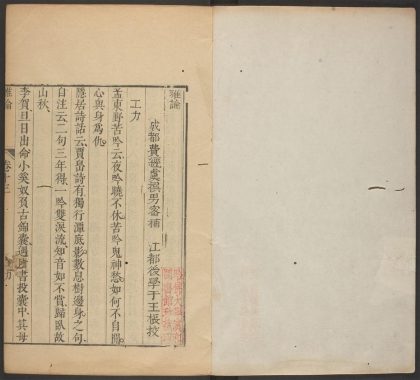 雅論
成都費經虞撰男密補 江都後學于王棖校
工力
孟東野苦吟云夜吟曉不休苦吟鬼神愁如何不自閒
心與身為仇
隱居詩話云賈島詩有獨行潭底影數息樹邊身之句
自注云二句三年得一吟雙淚流知音如不賞歸臥故
山秋
李賀旦日出命小奚奴負古錦囊遇得書投囊中其母
雅論
卷十三